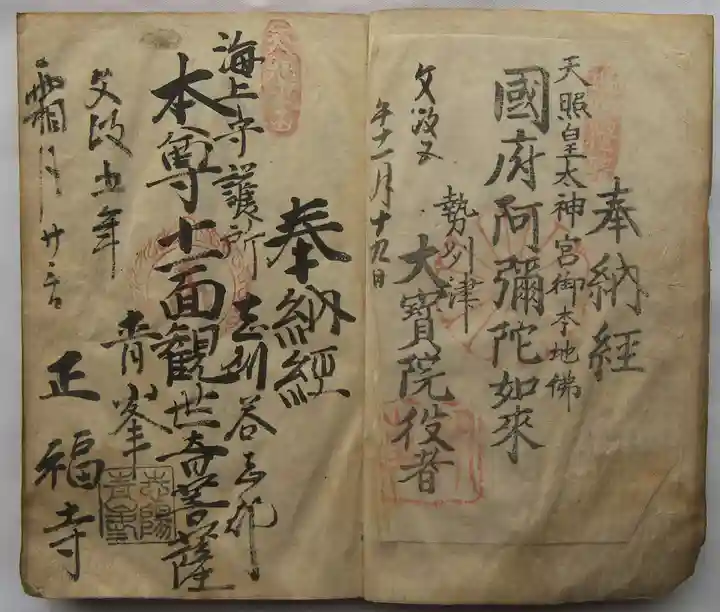 奉納経
天照皇太神宮御本地佛
國府阿彌陀如來
勢州津
大寳院役者
文政五
年十一月十九日
奉納經
海上守護所
志州
本尊十一面観世音菩薩
青峯
正福寺
文政五年
霜月廿